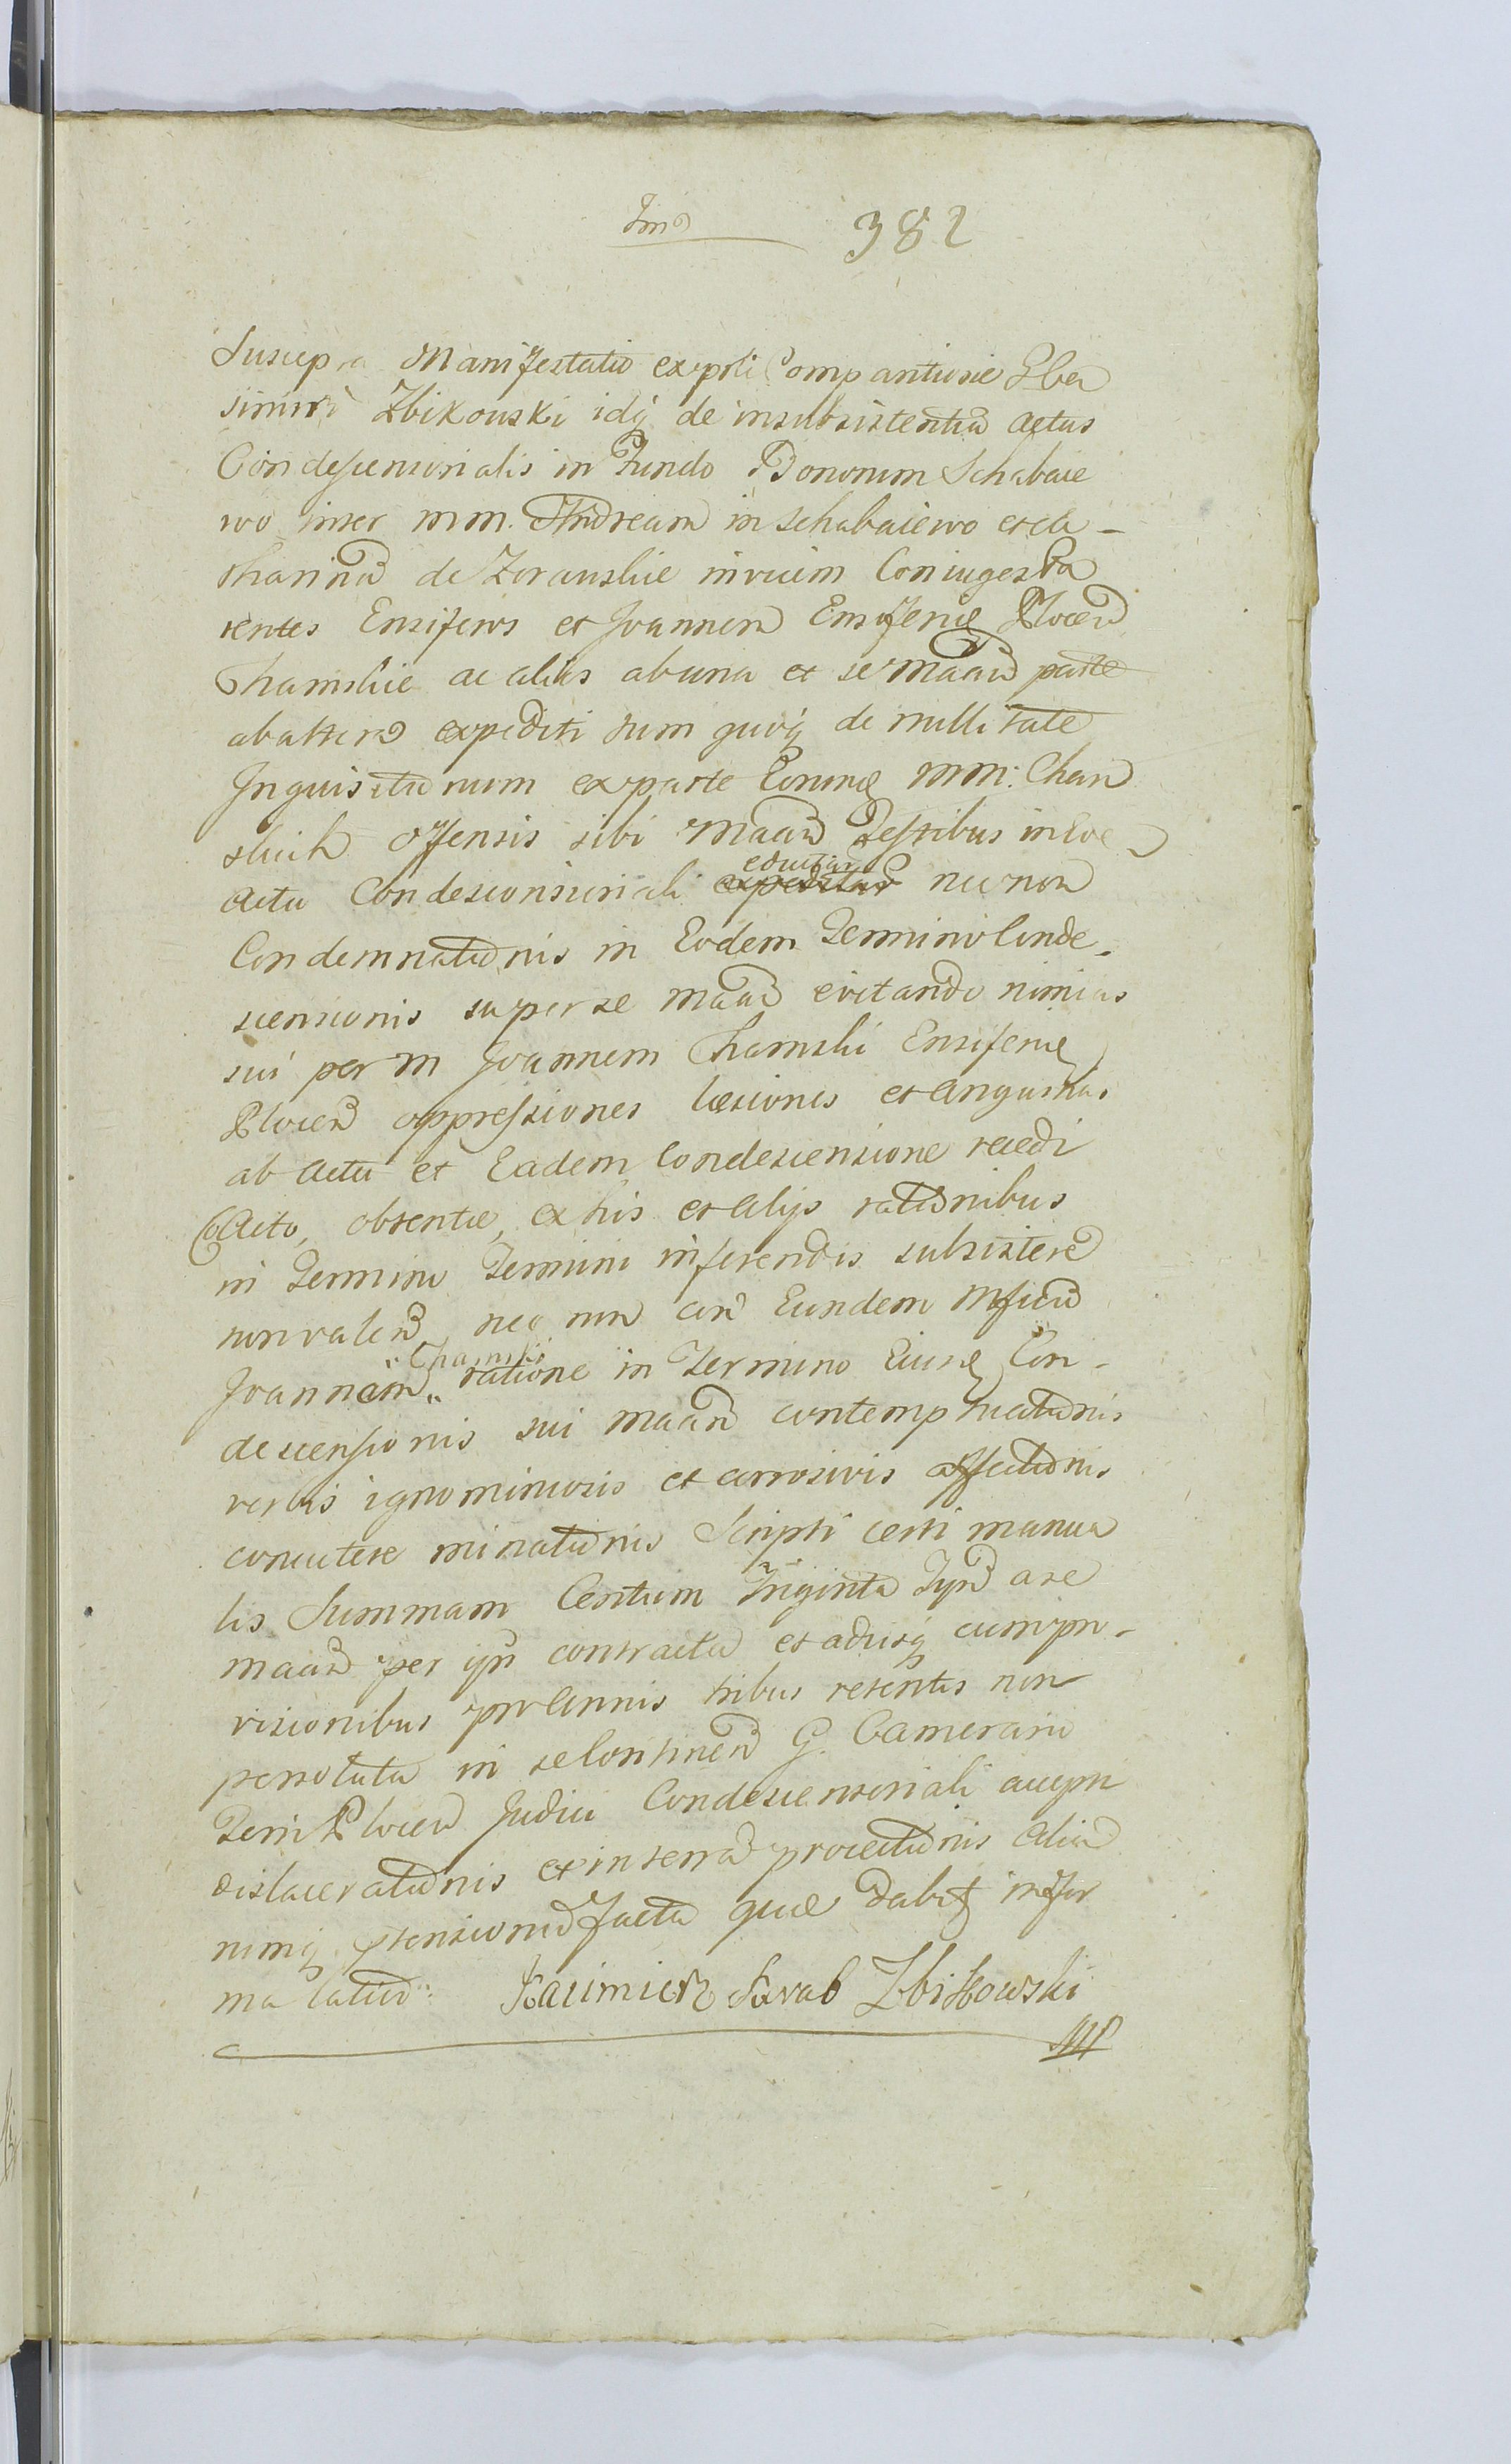 382
Suscep a Manifestatio exprsti Comp antiusie
simiri Zbikouski idq de insubsistentia actus
Condescensorialis in Fundo Bonorum Schabaie
wo inter mm. Andream in Schabaiewo et Ca-
tharinam de Zoranskie invicem Coniuges Pa
rentes Ensiferos et Joannem Ensiferiq Plocen
Chamskie ac alios ab una et se maan parte
ab altera expediti tum quoq de nullitate
Inquisitionum ex parte Eorunq mm: Cham
skich offensis sibi maan Testibus in Eoe
Actu Condescensoriali expeditar eductar nec non
Condemnationis in Eodem Termino Conde-
scensionis super se maan evitando nimias
sui per m Joannem Chamski Ensiferiq
Plocen oppressiones laesiones et angustias
ab Actu et Eadem Condescensione recedi
Coacto, obtentae, ex his et alijs rationibus
in Termino Termini inferendis subsistere
non valen nec non con Eundem Mficum
Joannem "Chamski" ratione in Termino Eiusq Con-
descensionis sui maan contemptuationis
verbis ignominiosis et corrosivis affectionis
concutere minationis Scripti certi manua
lis Summam Centum Triginta Tynf a se
maan per ipn contracta et adusq cum pro-
visionibus pro Annis tribus retentis non
persoluta in se Continen G. Camerario
Terri Plocen Judici Condescensoriali accepti
dislacerationis et in terram proiectionis Alia
rumq ptensionum facta quae dabit infor
ma latius: Kazimierz Zbikowski
MP